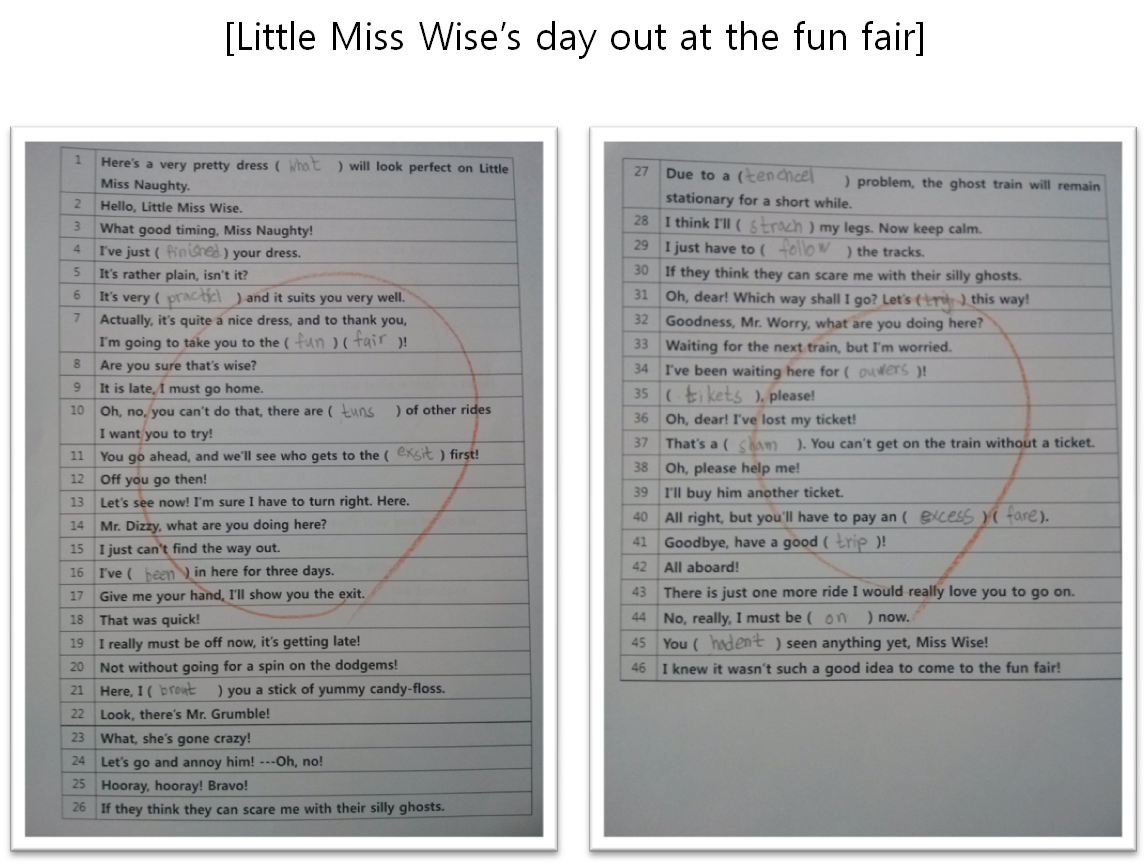 [Little Miss Wise's day out at the fun fair]
1 Here's a very pretty dress ( what ) will look perfect on Little
Miss Naughty.
2 Hello, Little Miss Wise.
3 What good timing, Miss Naughty!
4 I've just ( finished ) your dress.
5 It's rather plain, isn't it?
6 It's very ( practicl ) and it suits you very well.
7 Actually, it's quite a nice dress, and to thank you,
I'm going to take you to the ( fun ) ( fair )!
8 Are you sure that's wise?
9 It is late, I must go home.
10 Oh, no, you can't do that, there are ( tuns ) of other rides
I want you to try!
11 You go ahead, and we'll see who gets to the ( exsit ) first!
12 Off you go then!
13 Let's see now! I'm sure I have to turn right. Here.
14 Mr. Dizzy, what are you doing here?
15 I just can't find the way out.
16 I've ( been ) in here for three days.
17 Give me your hand, I'll show you the exit.
18 That was quick!
19 I really must be off now, it's getting late!
20 Not without going for a spin on the dodgems!
21 Here, I ( brout ) you a stick of yummy candy-floss.
22 Look, there's Mr. Grumble!
23 What, she's gone crazy!
24 Let's go and annoy him! ---Oh, no!
25 Hooray, hooray! Bravo!
26 If they think they can scare me with their silly ghosts.
27 Due to a ( tenchcel ) problem, the ghost train will remain
stationary for a short while.
28 I think I'll ( strach ) my legs. Now keep calm.
29 I just have to ( follow ) the tracks.
30 If they think they can scare me with their silly ghosts.
31 Oh, dear! Which way shall I go? Let's ( try ) this way!
32 Goodness, Mr. Worry, what are you doing here?
33 Waiting for the next train, but I'm worried.
34 I've been waiting here for ( ouwers )!
35 ( tikets ), please!
36 Oh, dear! I've lost my ticket!
37 That's a ( sham ). You can't get on the train without a ticket.
38 Oh, please help me!
39 I'll buy him another ticket.
40 All right, but you'll have to pay an ( excess ) ( fare ).
41 Goodbye, have a good ( trip )!
42 All aboard!
43 There is just one more ride I would really love you to go on.
44 No, really, I must be ( on ) now.
45 You ( hadent ) seen anything yet, Miss Wise!
46 I knew it wasn't such a good idea to come to the fun fair!